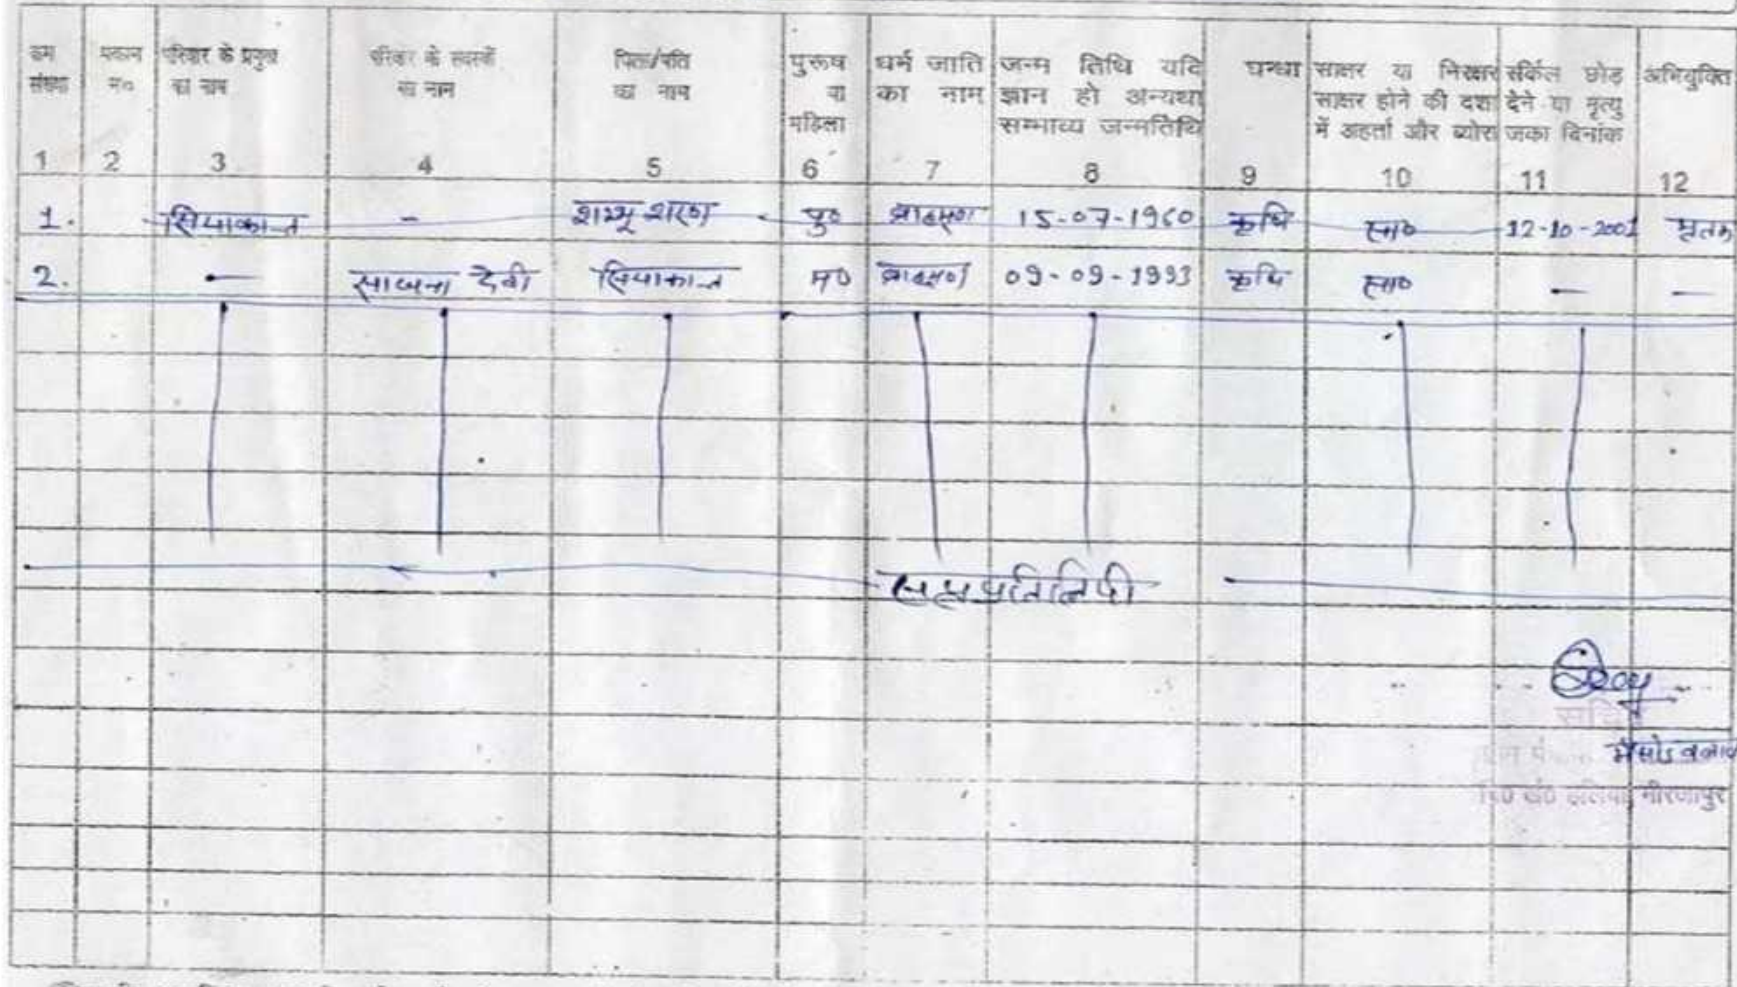 क्रम संख्या
मकान न०
परिवार के प्रमुख का नाम
परिवार के सदस्यों का नाम
पिता/पति का नाम
पुरूष या महिला
धर्म जाति का नाम
जन्म तिथि यदि ज्ञान हो अन्यथा सम्भाव्य जन्मतिथि
धन्धा
साक्षर या निरक्षर साक्षर होने की दशा में अहर्ता और ब्योरा
सर्किल छोड़ देने या मृत्यु जका दिनांक
अभियुक्ति
1 2 3 4 5 6 7 8 9 10 11 12
1. सियाकान्त - शम्भू शरण पु० ब्राह्मण 15-07-1960 कृषि सा० 12-10-2001 मृतक
2. — साधना देवी सियाकान्त म० ब्राह्मण 09-09-1993 कृषि सा० — —
सत्यप्रतिलिपी
सचिव
वि० खं० हलिया, मीरजापुर